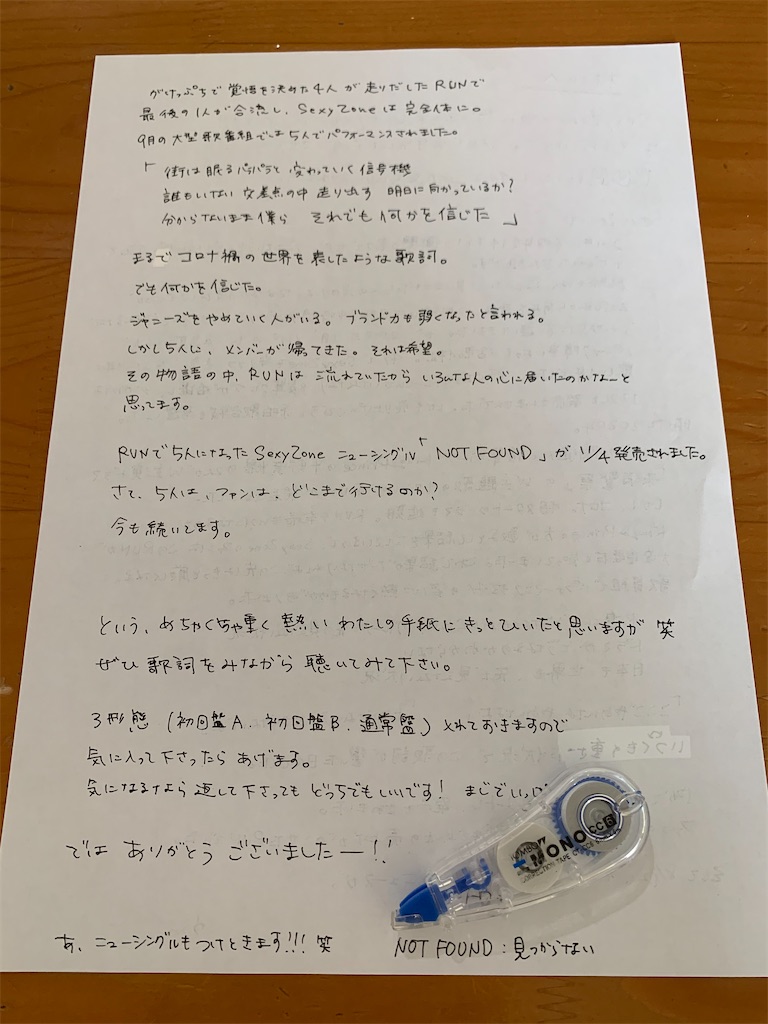 がけっぷちで覚悟を決めた4人が走りだしたRUNで
最後の1人が合流し、SexyZoneは完全体に。
9月の大型歌番組では5人でパフォーマンスされました。
「街は眠るパッパラと変わっていく信号機
誰もいない交差点の中走り出す 明日に向かっているか?
分からないまま僕ら それでも何かを信じた」
まるでコロナ禍の世界を表したような歌詞。
でも何かを信じた。
ジャニーズをやめていく人がいる。ブランド力も弱くなったと言われる。
しかし5人に、メンバーが帰ってきた。それは希望。
その物語の中、RUNは流れていたからいろんな人の心に届いたのかなーと
思ってます。
RUNで5人になったSexyZone ニューシングル「NOT FOUND」が11/4発売されました。
さて、5人は、ファンは、どこまで行けるのか?
今も続いてます。
という、めちゃくちゃ重く熱いわたしの手紙にきっとひいたと思いますが 笑
ぜひ歌詞をみながら聴いてみて下さい。
3形態(初回盤A、初回盤B、通常盤)入れておきますので
気に入って下さったらあげます。
気になるなら返して下さってもどっちでもいいです! まじでいっぱ
では ありがとう ございましたー!!
MONO
CC5
CORRECTION TAPE
あ、ニューシングルもつけときます!!! 笑
NOT FOUND:見つからない